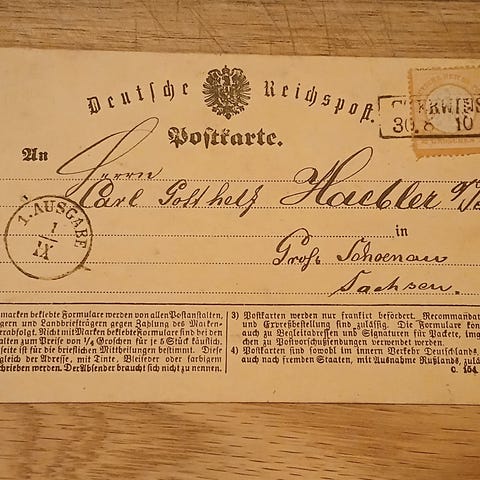 Deutsche Reichspost.
Postkarte.
30. 8. 10
An
Herrn
Carl Gotthelf Haebler
1. AUSGABE
1
IX
in
Groß Schoenau
Sachsen.
marken beklebte Formulare werden von allen Postanstalten,
gern und Landbriefträgern gegen Zahlung des Marken-
abfolgt. Nicht mit Marken beklebte Formulare sind bei den
alten zum Preise von ¼ Groschen für je 5 Stück käuflich.
seite ist für die brieflichen Mittheilungen bestimmt. Diese
gleich der Adresse, mit Tinte, Bleifeder oder farbigem
schrieben werden. Der Absender braucht sich nicht zu nennen.
3) Postkarten werden nur frankirt befördert. Recommandat
und Expreßbestellung sind zulässig. Die Formulare kön
auch zu Begleitadressen und Signaturen für Packete, imglei
chen zu Postvorschußsendungen verwendet werden.
4) Postkarten sind sowohl im innern Verkehr Deutschlands,
auch nach fremden Staaten, mit Ausnahme Rußlands, zuläss
C. 154